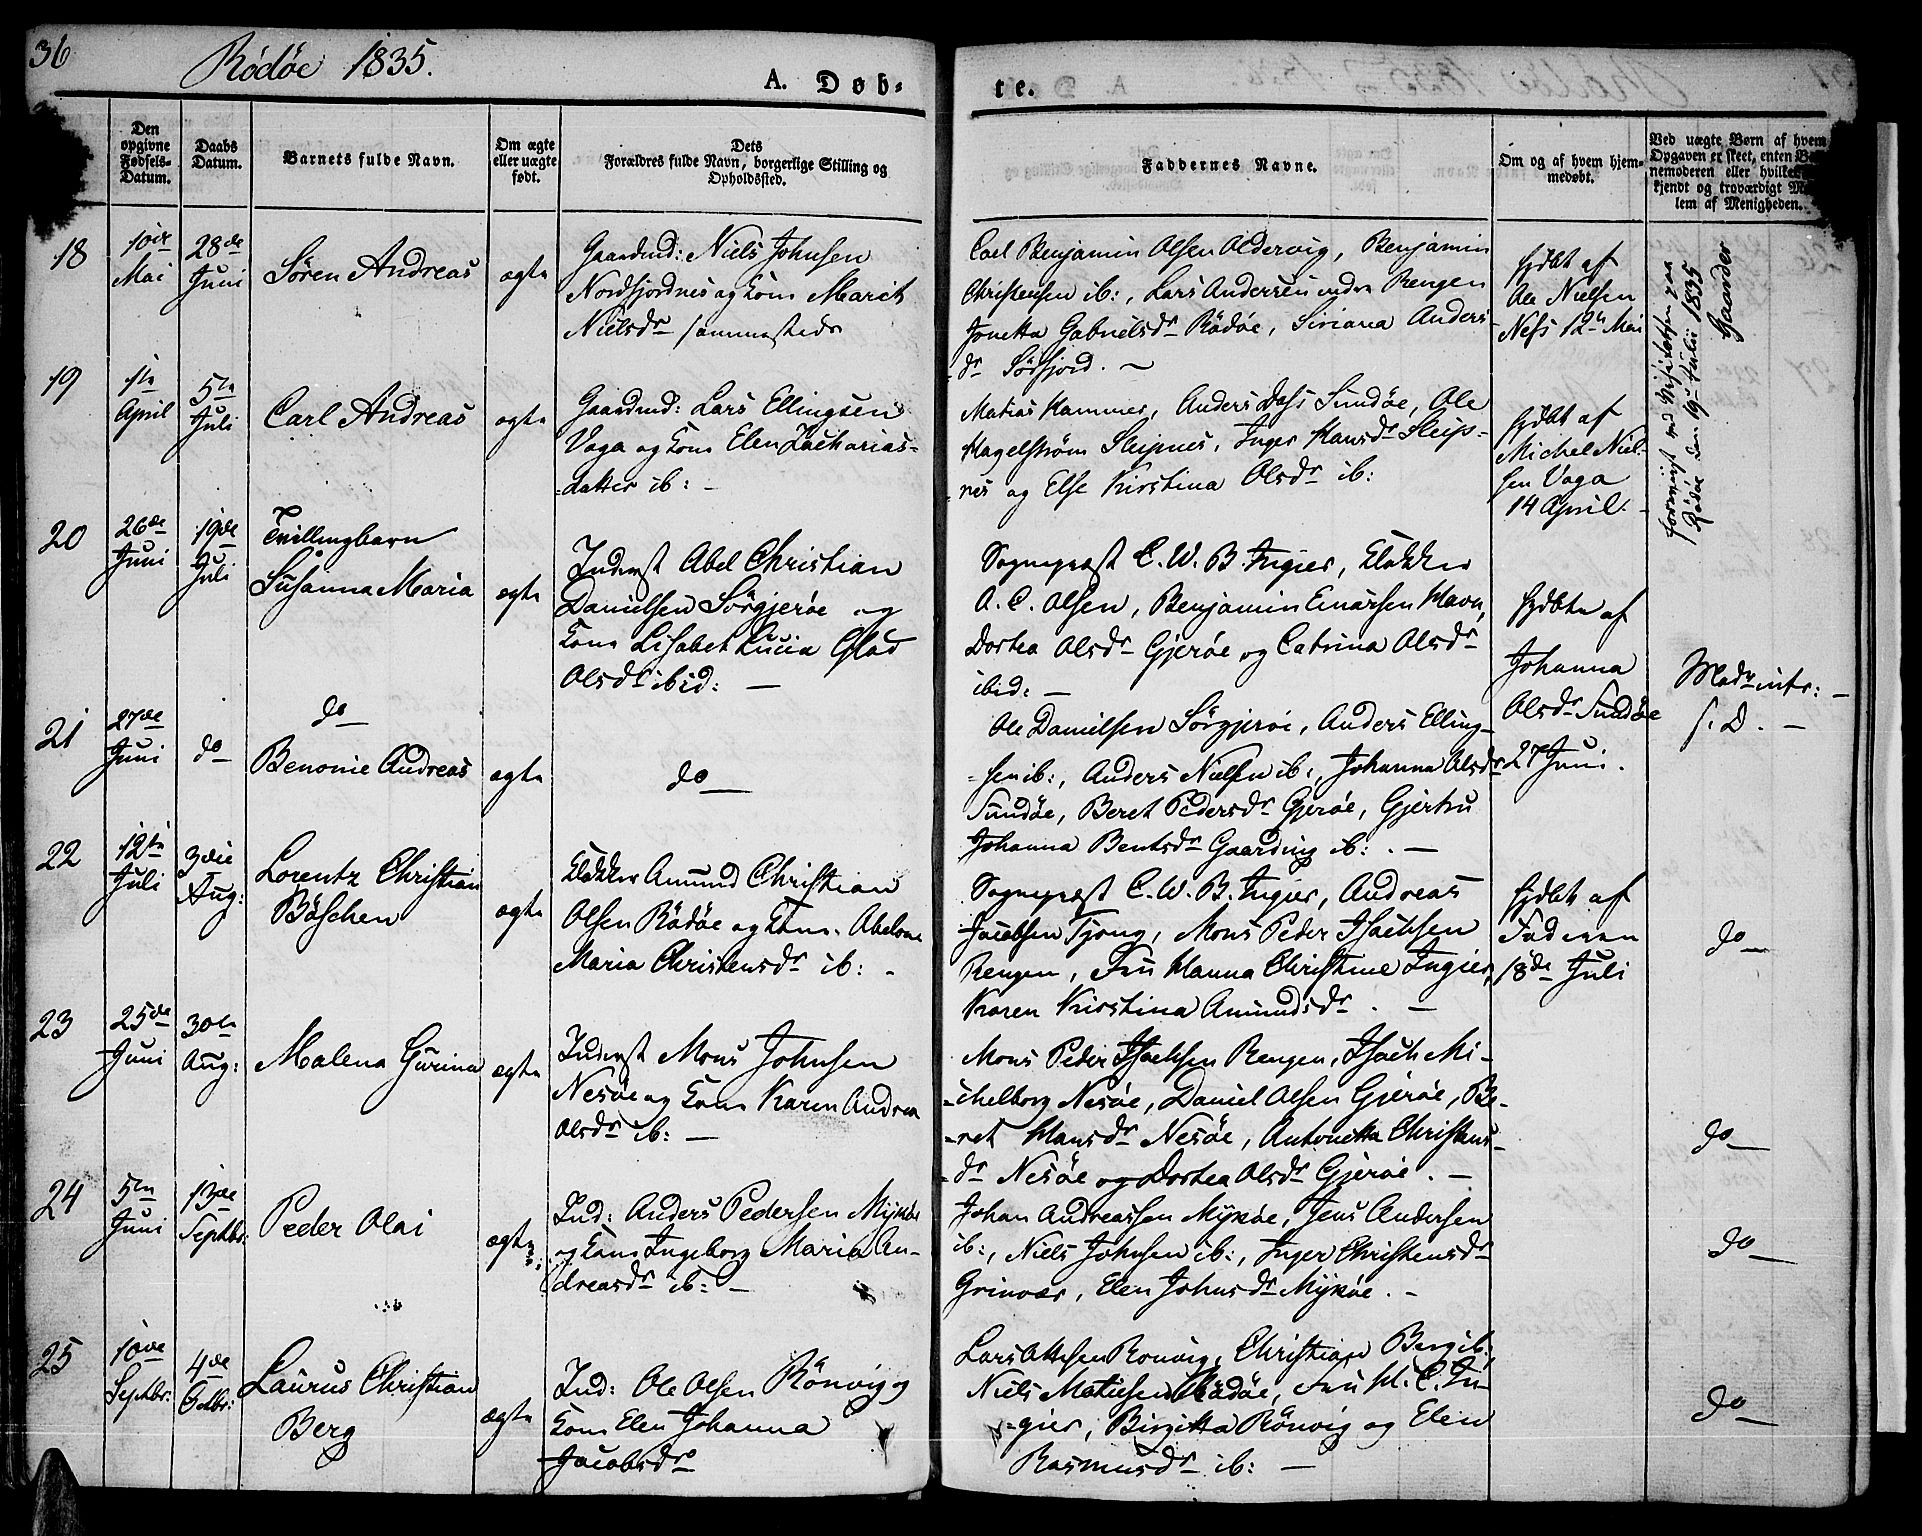 36
Rödöe 1835.
A. Døb-
te.
Den opgivne Fødsels-Datum.
Daabs Datum.
Barnets fulde Navn.
Om ægte eller uægte født.
Dets Forældres fulde Navn, borgerlige Stilling og Opholdssted.
Faddernes Navne.
Om og af hvem hjem-
medøbt.
Ved uægte Børn af hvem
Opgaven er skeet, enten
nemoderen eller hvilke
kjendt og troværdigt
lem af Menigheden.
18
10de Mai
28de Juni
Sören Andreas
ægte
Gaardmd: Niels Johnsen
Nordfjordnes og Kone Marit
Nielsdr sammesteds
Carl Benjamin Olsen Aldervig, Benjamin
Christensen ib:, Lars Andersen indre Rengen
Jonetta Gabrielsdr Rödöe, Siriana Anders-
dr Sörfjord. -
hjdbt af
Ole Nielsen
Nefs 12te Mai
19
1te April
5te Juli
Carl Andreas
ægte
Gaardmd: Lars Ellingsen
Vaga og Kone Elen Zacharias-
datter ib: -
Matias Hammer, Anders Dass Sundöe, Ole
Hagelström Sleipnes, Inger Hansdr Sleip-
nes og Else Kirstina Olsdr ib:
hjdbt af
Michel Niel-
sen Vaga
14 April.
Rödöe den 19de Julii 1835
Gaarder
20
26de Juni
19de Juli
Tvillingbarn
Susanna Maria
ægte
Inderst Abel Christian
Danielsen Sörgjeröe og
Kone Lisabet Lucia Glad
Olsdr ibid: -
Sognepræst C. W. B. Ingier, Klokker
A. C. Olsen, Benjamin Einarsen Havn,
Dortea Olsdr Gjeröe og Catrina Olsdr
ibid: -
hjdbte af
Johanna
Olsdr Sundöe
27 Juni.
Modr intr: -
s. D. -
21
27de Juni
do
do
Benonie Andreas
ægte
do
Ole Danielsen Sörgjeröe, Anders Elling-
sen ib:, Anders Nielsen ib:, Johanna Olsdr
Sundöe, Beret Pedersdr Gjeröe, Gjertru
Johanna Bentsdr Gaarding ib: . -
22
12te Juli
3die Aug:
Lorentz Christian
Böschen
ægte
Klokker Amund Christian
Olsen Rödöe og Kone Abelone
Maria Christensdr ib: -
Sognepræst C. W. B. Ingier, Andreas
Jacobsen Tjong, Mons Peder Isachsen
Rengen, Fru Hanna Christine Ingier,
Karen Kirstina Amundsdr . -
hjdbt af
Faderen
18de Juli
do
23
25de Juni
30te Aug:
Malena Gurina
ægte
Inderst Mons Johnsen
Nesöe og Kone Karen Andrea
Olsdr ib: -
Mons Peder Isachsen Rengen, Isach Mi-
chelborg Nesöe, Daniel Olsen Gjeröe, Be-
ret Hansdr Nesöe, Antonetta Christens-
dr Nesöe og Dortea Olsdr Gjeröe . -
do
24
5te Juni
13de Septbr:
Peder Olai
ægte
Ind: Anders Pedersen Myköe
og Kone Ingeborg Maria An-
dreasdr ib: -
Johan Andreassen Myköe, Jens Andersen
ib:, Niels Johnsen ib:, Inger Christensdr
Grinvær, Elen Johnsdr Myköe . -
do
25
10de Septbr:
4de Octbr:
Laurus Christian
Berg
ægte
Ind: Ole Olsen Rönvig og
Kone Elen Johanna
Jacobsdr
Lars Ottesen Ronvig, Christian Berg ib:,
Niels Matiesen Rödöe, Fru H. C. In-
gier, Birgitta Rönvig og Elen
Rasmusdr ib: -
do